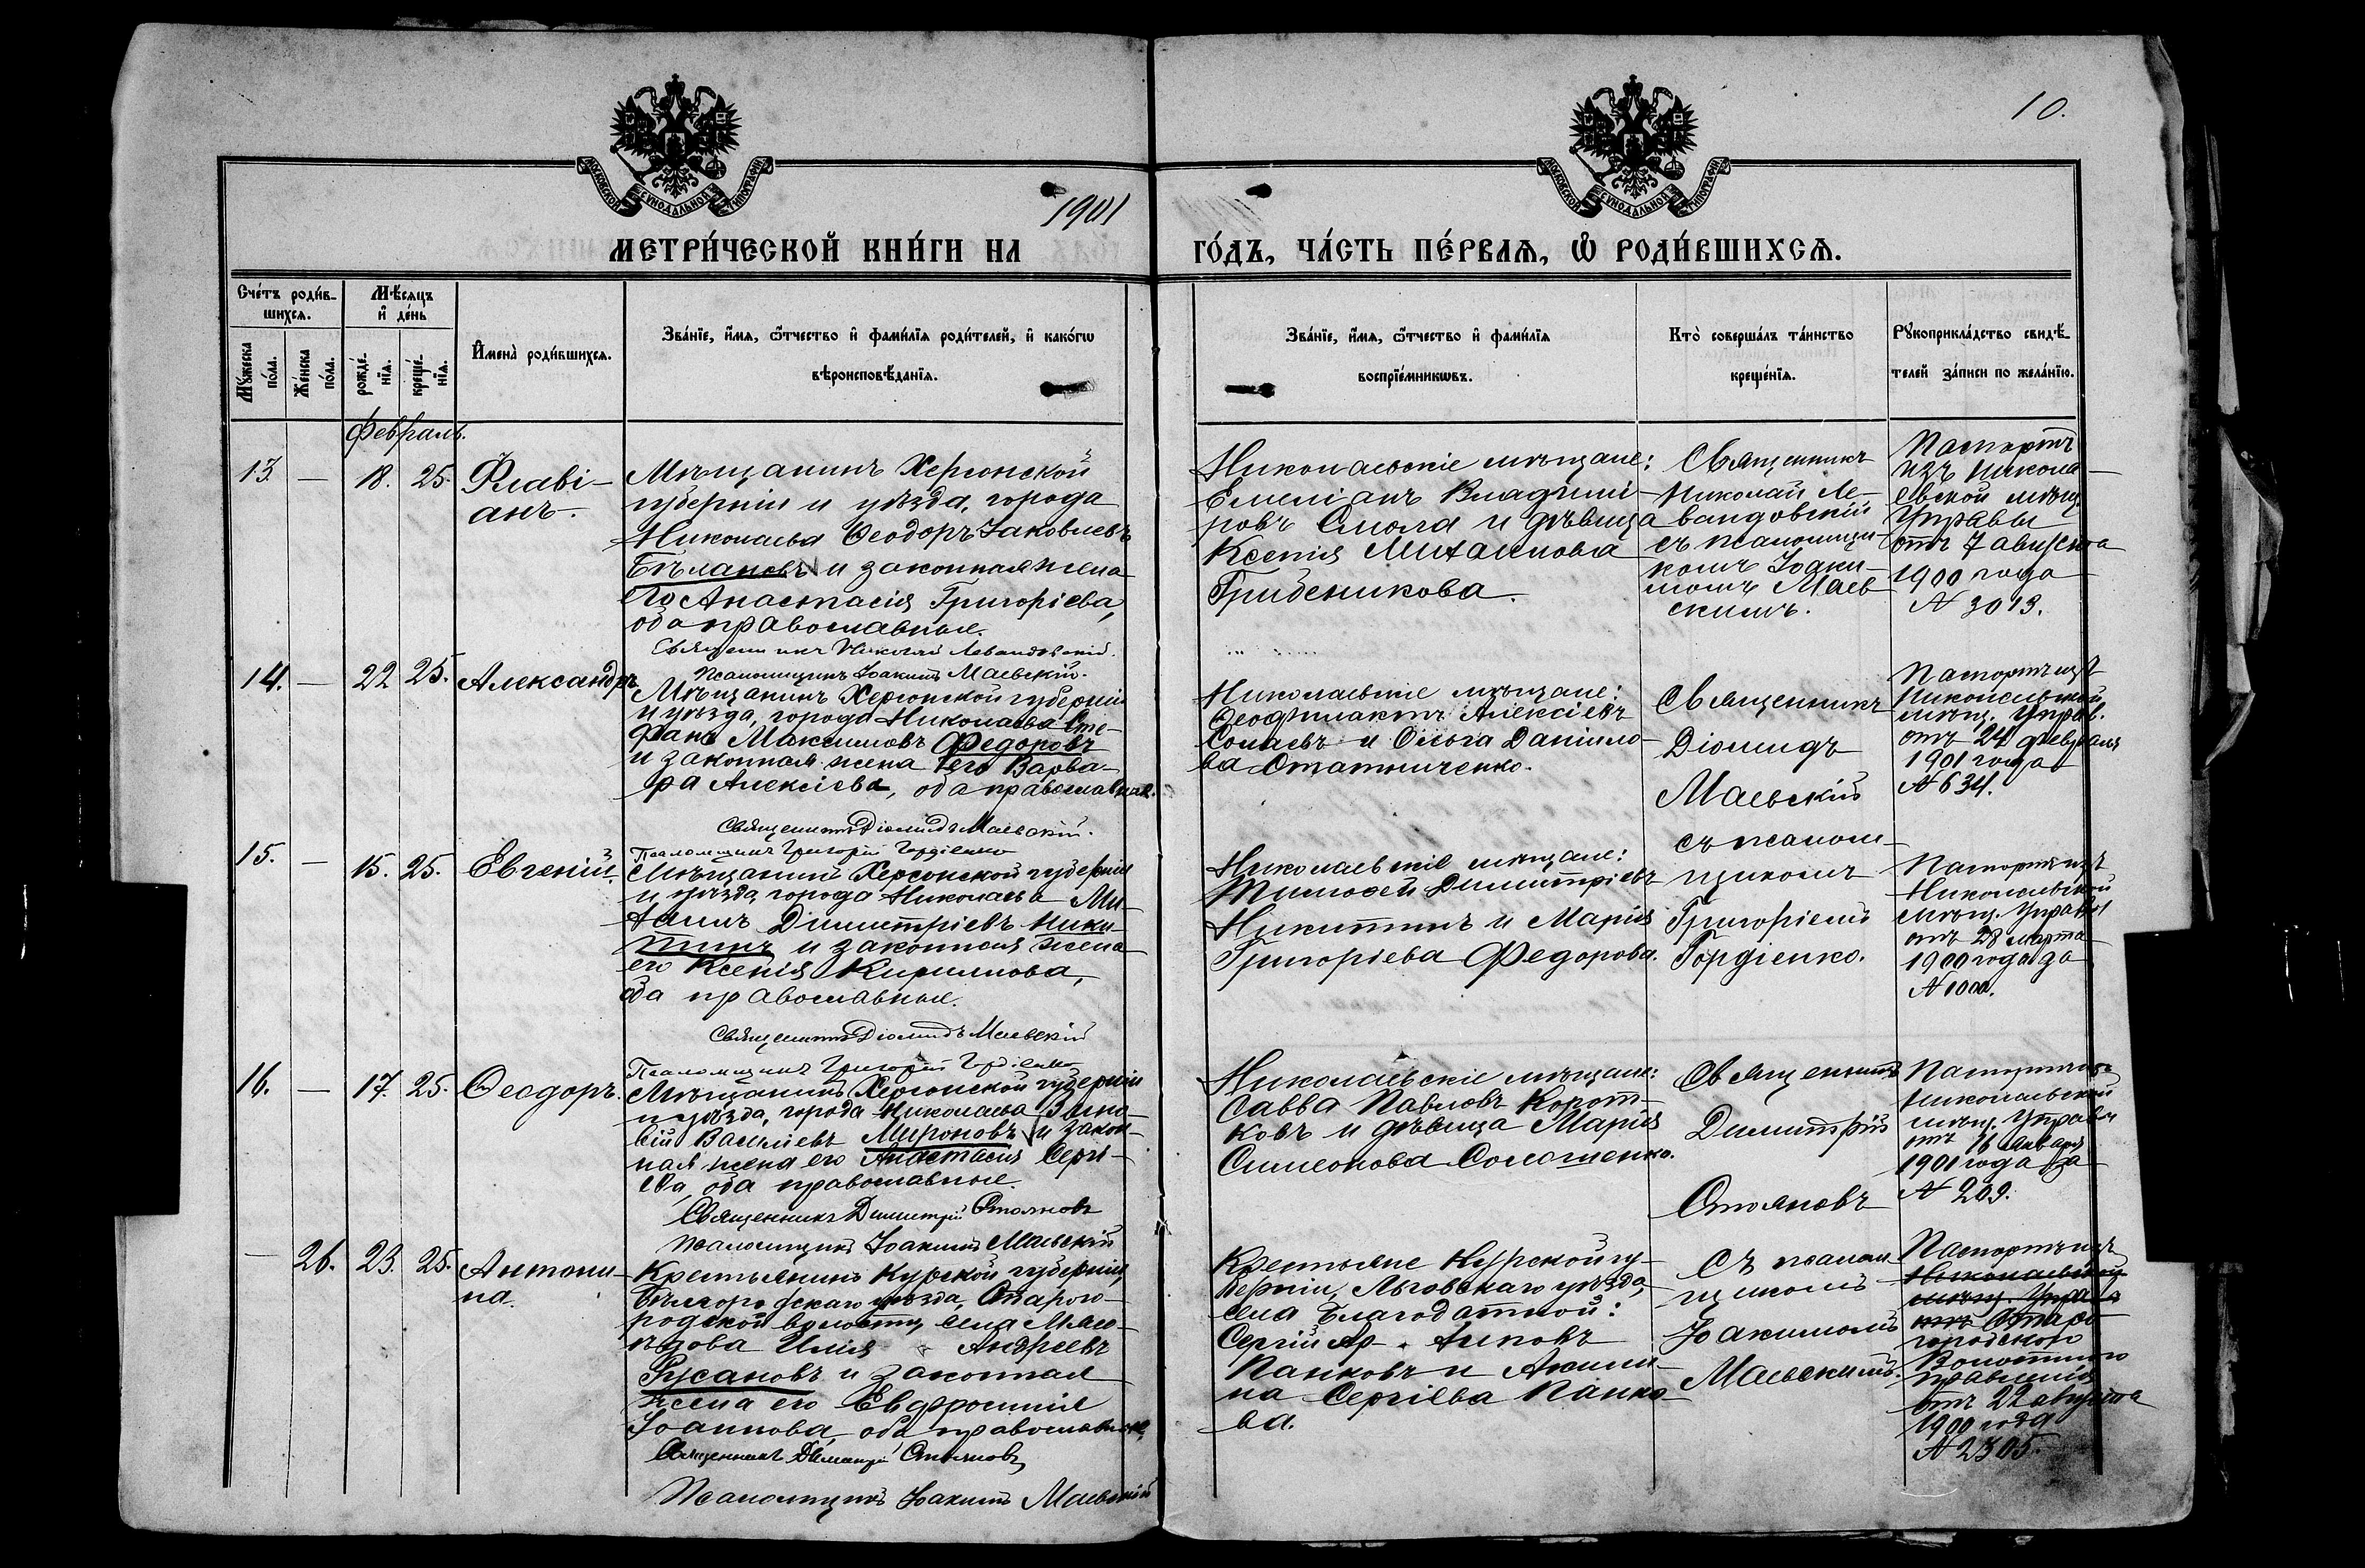 10.
МОСКОВСКОЙ СѴНОДАЛЬНОЙ ТИПОГРАФИИ
МОСКОВСКОЙ СѴНОДАЛЬНОЙ ТИПОГРАФИИ
1901
МЕТРИ́ЧЕСКОЙ КНИ́ГИ НА
ГО́ДЪ, ЧА́СТЬ ПЕ́РВАѦ, Ѡ҆ РОДИ́ВШИХСѦ.
Сче́тъ роди́в-
шихсѧ.
Мꙋ́жеска по́ла.
Же́нска по́ла.
Мѣ́сѧцъ
и҆ де́нь
рожде́-нїѧ.
креще́-нїѧ.
И҆мена̀ роди́вшихсѧ.
Зва́нїе, и҆́мѧ, ѻ҆́тчество и҆ фами́лїѧ роди́телей, и҆ како́гѡ
вѣроисповѣ́данїѧ.
Зва́нїе, и҆́мѧ, ѻ҆́тчество и҆ фами́лїѧ
воспрїе́мникѡвъ.
Кто̀ соверша́лъ та́инство
креще́нїѧ.
Рꙋкоприкла́дство свидѣ́-
телей за́писи по жела́нїю.
Февраль.
13. — 18. 25. Флаві-
анъ.
Мѣщанинъ Херсонской
губерніи и уѣзда, города
Николаева Ѳеодоръ Іаковлевъ
Бѣлановъ и законная жена
его Анастасія Григоріева,
оба православные.
Священникъ Николай Левандовскій.
Псаломщикъ Іоакимъ Маевскій.
Николаевскіе мѣщане:
Емеліанъ Владимі-
ровъ Смола и дѣвица
Ксенія Михаилова
Грибеникова.
Священникъ
Николай Ле-
вандовскій
съ псаломщи-
комъ Іоаки-
момъ Маев
скимъ.
Паспортъ
изъ Никола-
евской мѣщ.
Управы
отъ 7 августа
1900 года
N 3013.
14. — 22 25. Александръ
Мѣщанинъ Херсонской губерніи
и уѣзда, города Николаева Сте-
фанъ Максимовъ Федоровъ
и законная жена его Варва-
ра Алексіева, оба православные.
Священникъ Діомидъ Маевскій.
Псаломщикъ Григорій Гордіенко
Николаевскіе мѣщане:
Ѳеофилактъ Алексіевъ
и Ольга Даніило-
ва
Священникъ
Діомидъ
Маевскій
съ псалом-
щикомъ
Григоріемъ
Гордіенко.
Паспортъ изъ
Николаевской
мѣщ. Управ.
отъ 24 февраля
1901 года
N 634.
15. — 15. 25. Евгеній.
Мѣщанинъ Херсонской губерніи
и уѣзда, города Николаева Ми-
хаилъ Димитріевъ Ники-
тинъ и законная жена
его Ксенія Кириллова,
оба православные.
Священникъ Діомидъ Маевскій
Псаломщикъ Григорій Гордіенко
Николаевскіе мѣщане:
Тимоѳей Димитріевъ
Никитинъ и Марія
Григоріева Федорова.
Паспортъ изъ
Николаевской
мѣщ. Управы
отъ 28 марта
1900 года за
N 1000.
16. — 17. 25. Ѳеодоръ.
Мѣщанинъ Херсонской губерніи
и уѣзда, города Николаева
Васильевъ Мироновъ и закон-
ная жена его Анастасія Сергі-
ева, оба православные.
Священникъ Димитрій Стояновъ
Псаломщикъ Іоакимъ Маевскій
Николаевскіе мѣщане:
Савва Павловъ Корот-
ковъ и дѣвица Марія
Симеонова Соломенко.
Священникъ
Димитрій
Стояновъ
съ псалом
щикомъ
Іоакимомъ
Маевскимъ.
Паспортъ изъ
Николаевской
мѣщ. Управы
отъ 16 января
1901 года за
N 209.
— 26. 23. 25. Антони-
на.
Крестьянинъ Курской губерніи,
Бѣлгородскаго уѣзда, Старого-
родской волости, села Мясо-
ѣдова Илія Андреевъ
Русановъ и законная
жена его Евфросинія
Іоаннова, оба православные.
Священникъ Димитрій Стояновъ
Псаломщикъ Іоакимъ Маевскій
Крестьяне Курской гу-
берніи, Льговскаго уѣзда,
села Благодатной:
Сергій
Панковъ и Акили-
на Сергіева Панко-
ва.
Паспортъ изъ
Николаевской
мѣщ. Управы
отъ Старо-
городского
Волостного
правленія
отъ 22 августа
1900 года
N 2305.